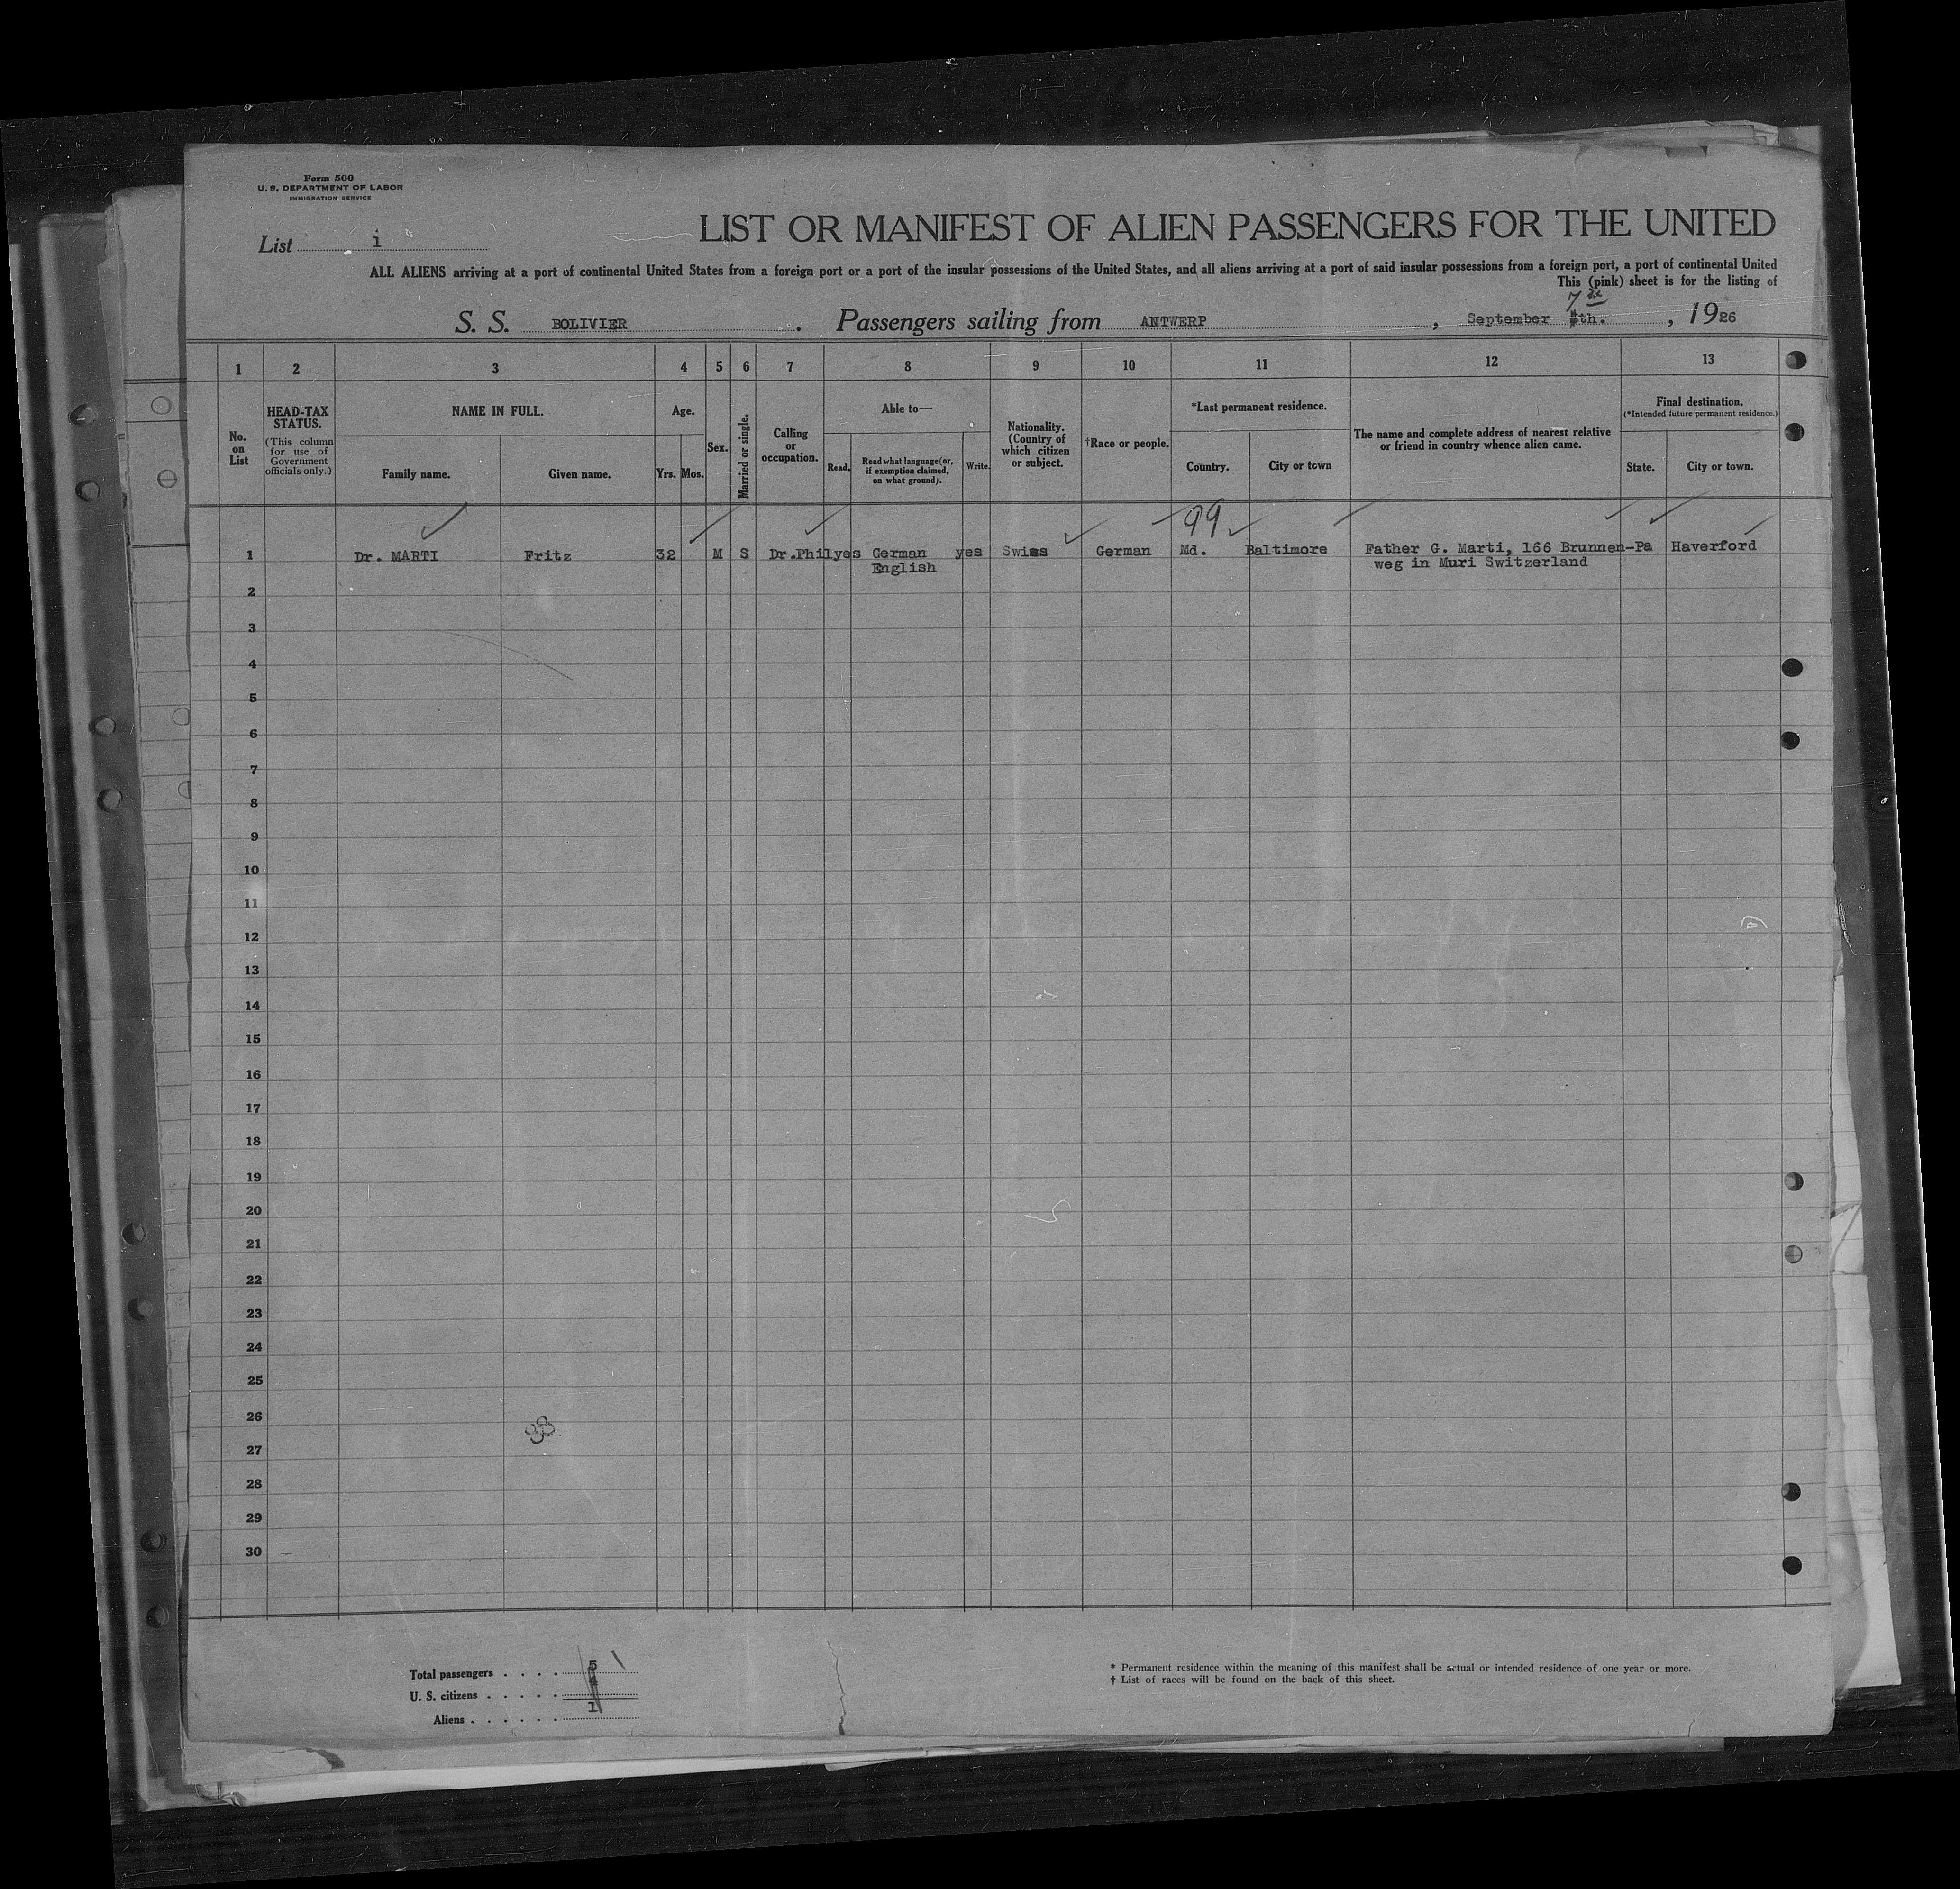 Form 500
U. S. DEPARTMENT OF LABOR
IMMIGRATION SERVICE
List i
LIST OR MANIFEST OF ALIEN PASSENGERS FOR THE UNITED
ALL ALIENS arriving at a port of continental United States from a foreign port or a port of the insular possessions of the United States, and all aliens arriving at a port of said insular possessions from a foreign port, a port of continental United
This (pink) sheet is for the listing of
S. S. BOLIVIER . Passengers sailing from ANTWERP , September 7th th. , 1926
1 2 3 4 5 6 7 8 9 10 11 12 13
No. on List
HEAD-TAX STATUS.
(This column for use of Government officials only.)
NAME IN FULL.
Family name. Given name.
Age.
Yrs. Mos.
Sex.
Married or single.
Calling or occupation.
Able to—
Read. Read what language (or, if exemption claimed, on what ground). Write.
Nationality. (Country of which citizen or subject.
†Race or people.
*Last permanent residence.
Country. City or town
The name and complete address of nearest relative or friend in country whence alien came.
Final destination.
(*Intended future permanent residence.)
State. City or town.
99
1 Dr. MARTI Fritz 32 M S Dr.Phil yes German yes Swiss German Md. Baltimore Father G. Marti, 166 Brunnen- Pa Haverford
English weg in Muri Switzerland
2
3
4
5
6
7
8
9
10
11
12
13
14
15
16
17
18
19
20
21
22
23
24
25
26
27
28
29
30
Total passengers . . . . 5
U. S. citizens . . . . . 4
Aliens . . . . . . 1
* Permanent residence within the meaning of this manifest shall be actual or intended residence of one year or more.
† List of races will be found on the back of this sheet.